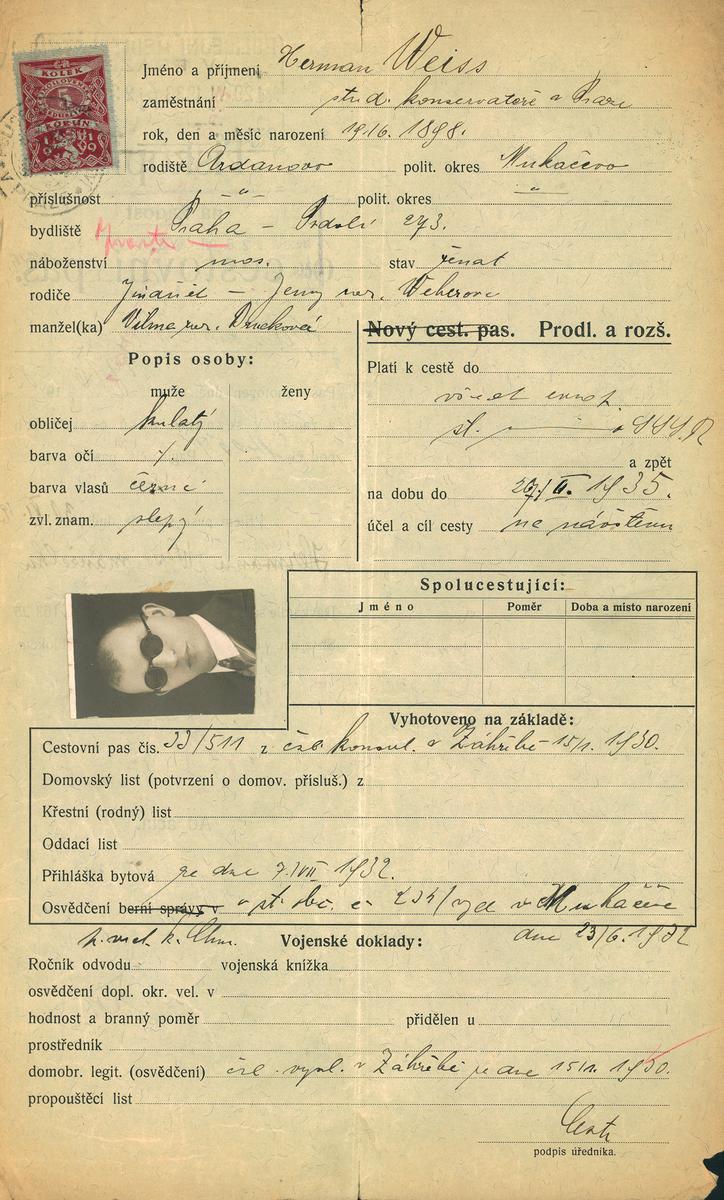 KOLEK
5
KORUN
Jméno a příjmení Herman Weiss
zaměstnání stud. konservatoře v Praze
rok, den a měsíc narození 19.6. 1898.
rodiště Ardanovo polit. okres Mukačevo
příslušnost -"- polit. okres -"-
bydliště Praha – Podolí 273.
náboženství mos. stav ženat
rodiče – Jeny roz. Weberova
manžel(ka) Vilma roz.
Nový cest. pas. Prodl. a rozš.
Popis osoby:
muže ženy
obličej kulatý
barva očí
barva vlasů černé
zvl. znam. slepý
Platí k cestě do
všech evrop.
st.
a zpět
na dobu do II. 1935.
účel a cíl cesty na návštěvu
Spolucestující:
Jméno Poměr Doba a místo narození
Vyhotoveno na základě:
Cestovní pas čís. 33/511 z čsl. konsul. v Záhřebě 15/1. 1930.
Domovský list (potvrzení o domov. přísluš.) z
Křestní (rodný) list
Oddací list
Přihláška bytová ze dne 7/VII 1932.
Osvědčení berní správy v v Mukačevě
dne 23/6. 1932
Vojenské doklady:
Ročník odvodu vojenská knížka
osvědčení dopl. okr. vel. v
hodnost a branný poměr přidělen u
prostředník
domobr. legit. (osvědčení) čsl. v Záhřebě ze dne 15/1. 1930.
propouštěcí list
podpis úředníka.